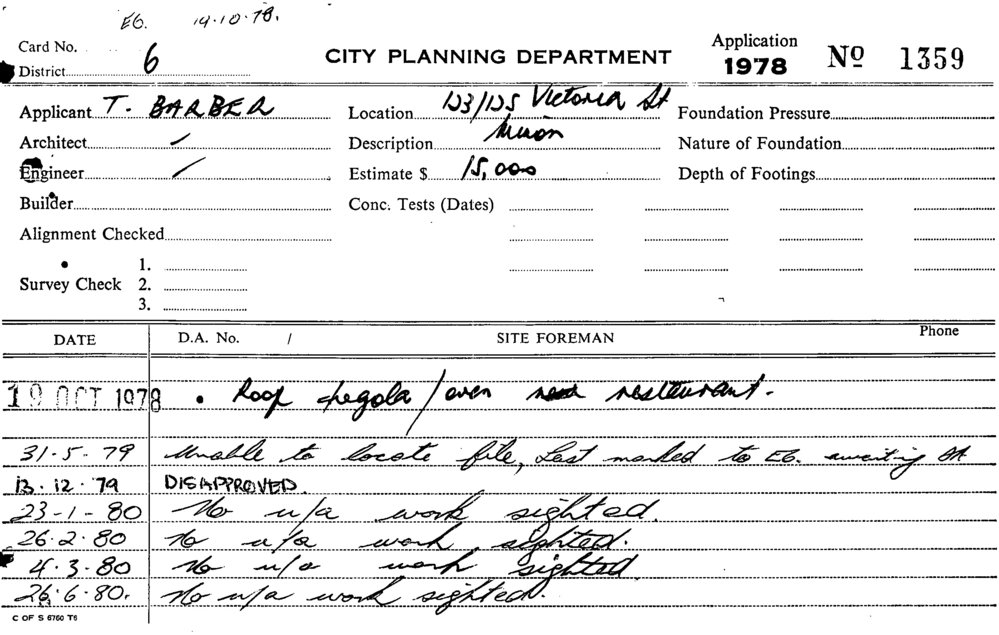 EG. 19·10·78.
Card No.
District 6
CITY PLANNING DEPARTMENT
Application 1978 No 1359
Applicant T. BARBER
Location 123/125 Victoria St
Foundation Pressure
Architect /
Description
Nature of Foundation
Engineer /
Estimate $ 15,000
Depth of Footings
Builder
Conc. Tests (Dates)
Alignment Checked
1.
Survey Check 2.
3.
DATE D.A. No. / SITE FOREMAN Phone
19 OCT 1978 • Roof / over restaurant.
31-5-79 Unable to locate file, Last marked to EG. awaiting
13·12·79 DISAPPROVED.
23-1-80 No u/a work sighted.
26·2·80 No u/a work sighted.
4·3·80 No u/a work sighted.
26·6·80. No u/a work sighted.
C OF S 6760 T6